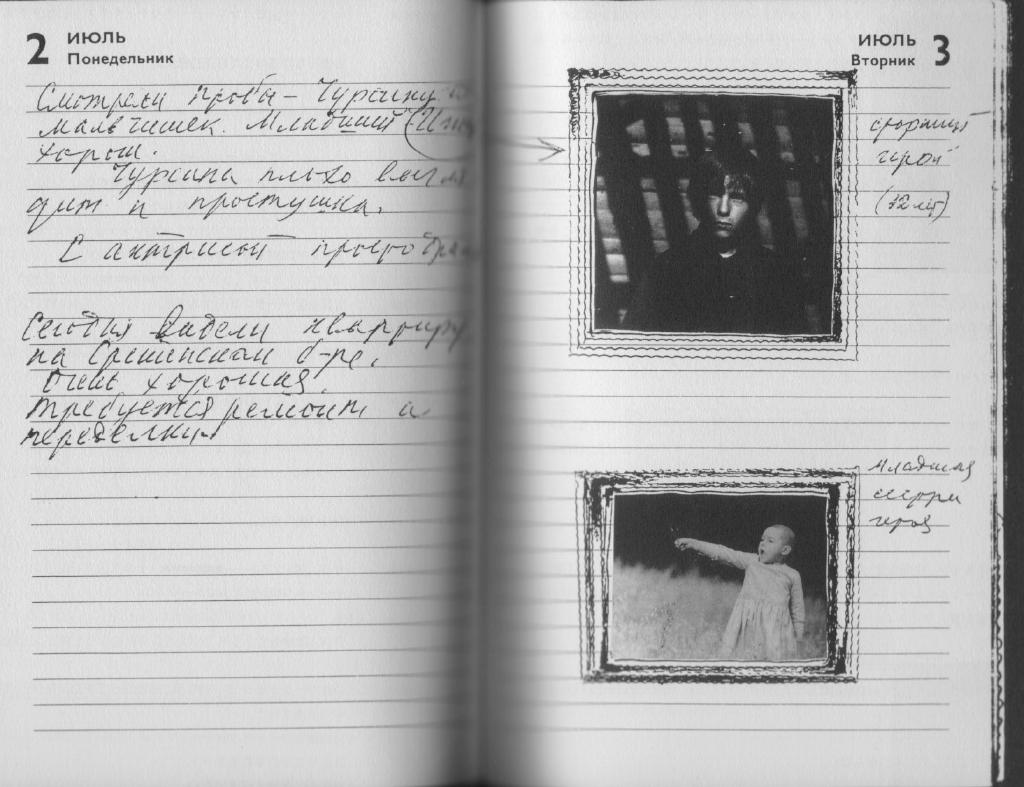 2 ИЮЛЬ
Понедельник
Смотрели пробы – Чурсину и
мальчишек. Младший
хорош.
Чурсина плохо выгля
дит и простушка.
С актрисой просто
Сегодня видели квартиру
на Сретенском б-ре.
Очень хорошая.
Требуется ремонт и
переделки.
ИЮЛЬ 3
Вторник
герой
(12 лет)
Младшая
сестра
героя